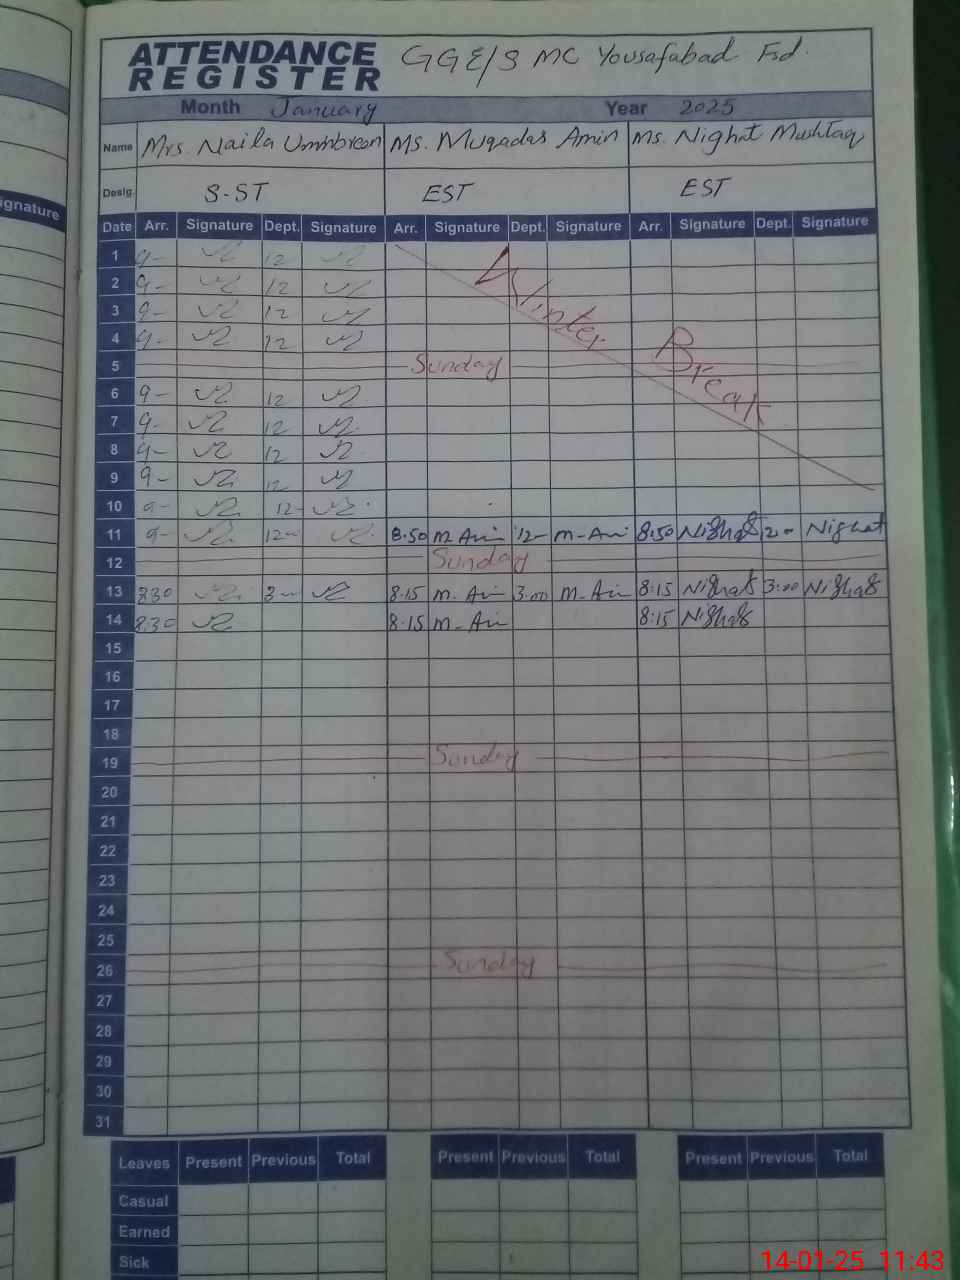 ignature
ATTENDANCE REGISTER GGE/S MC Yousafabad Fsd.
Month January Year 2025
Name Mrs. Naila Ummbreen Ms. Muqadas Amin Ms. Nighat Mushtaq
Desig. S-ST EST EST
Date Arr. Signature Dept. Signature Arr. Signature Dept. Signature Arr. Signature Dept. Signature
1 9- 12
2 9- 12 Winter
3 9- 12
4 9- 12 Break
5 Sunday
6 9- 12
7 9- 12
8 9- 12
9 9- 12
10 9- 12-
11 9- 12- 8.50 M. Ain 12- M-Ain 8:50 Nighat 2.0 Nighat
12 Sunday
13 830 3- 8:15 M. Ain 3.00 M-Ain 8:15 Nighat 3:00 Nighat
14 8.30 8:15 M-Ain 8:15 Nighat
15
16
17
18
19 Sunday
20
21
22
23
24
25
26 Sunday
27
28
29
30
31
Leaves Present Previous Total Present Previous Total Present Previous Total
Casual
Earned
Sick
14-01-25 11:43